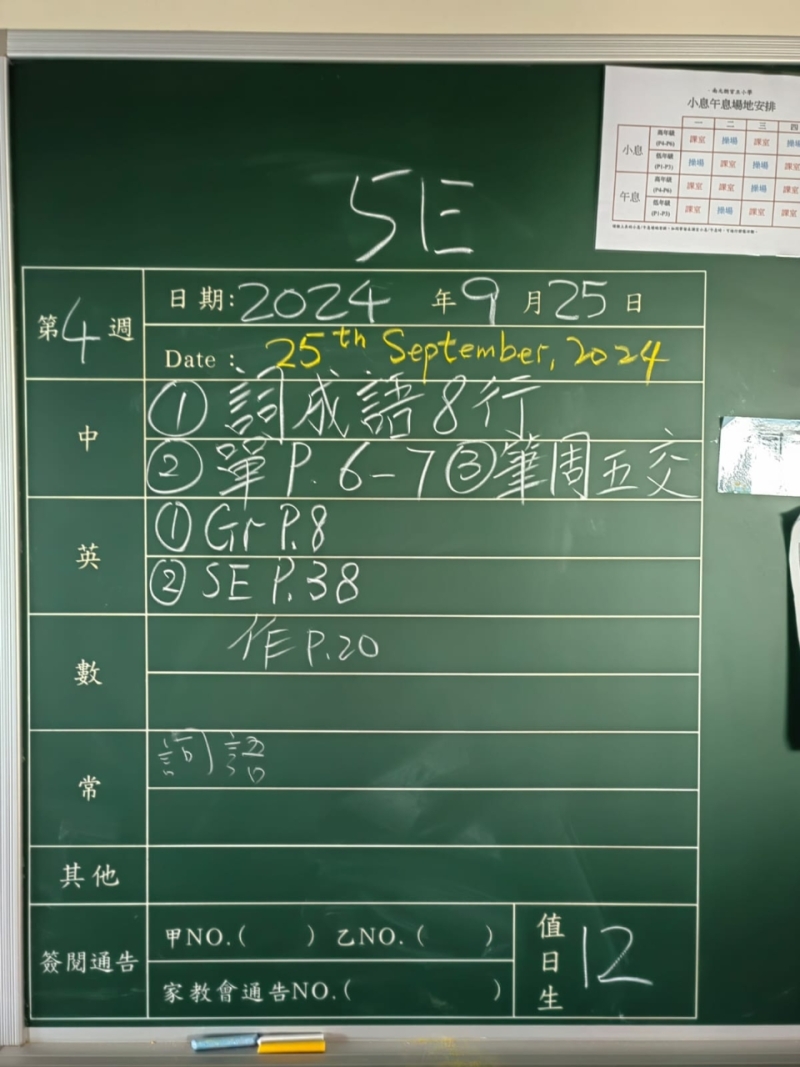 小息午息場地安排
一 二 三 四
小息 高年級 (P4-P6) 課室 操場 課室 操場
低年級 (P1-P3) 操場 課室 操場 課室
午息 高年級 (P4-P6) 課室 課室 操場 課室
低年級 (P1-P3) 課室 操場 課室 課室
5E
第4週 日期:2024年9月25日
Date : 25th September, 2024
中 ① 詞成語8行
② 單P.6-7 ③筆周五交
英 ① Gr P.8
② SE P.38
數 作P.20
常 詞語
其他
簽閱通告 甲NO.( ) 乙NO.( )
家教會通告NO.( )
值日生 12